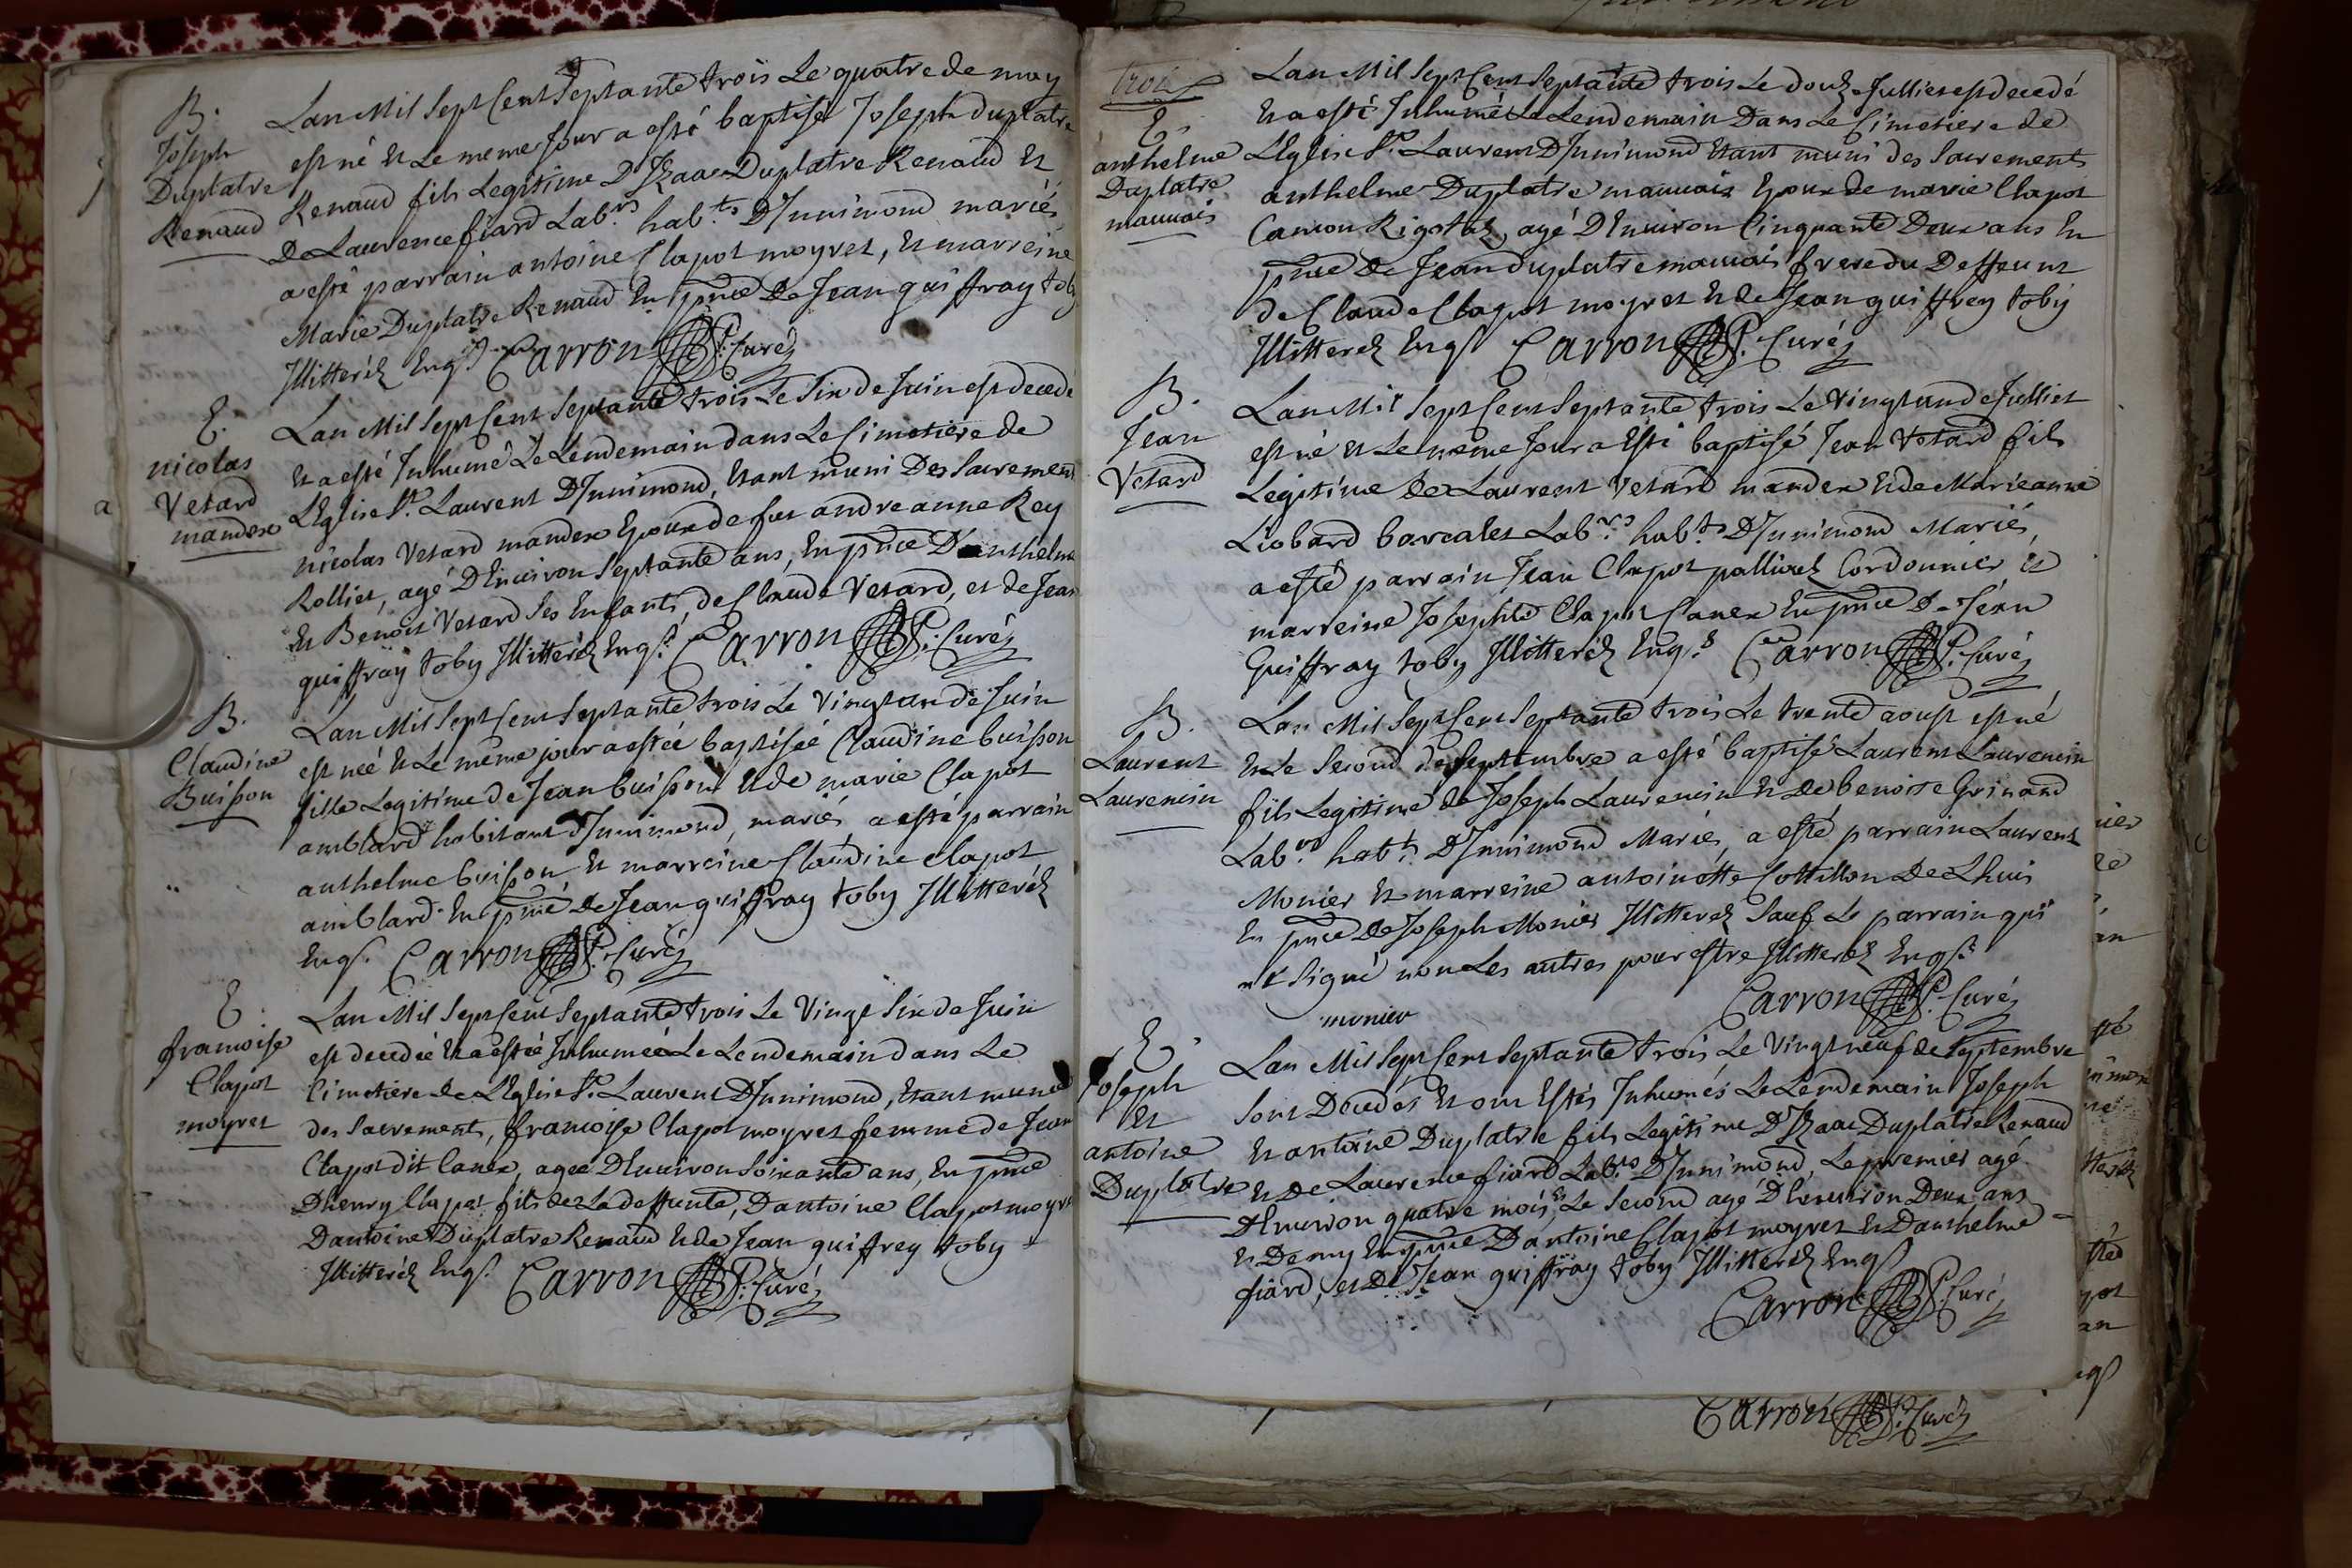 B.
Joseph
Duplatre
Renaud
Lan Mil Sept Cent Septante trois Le quatre de may
est né Et Le meme Jour a esté baptisé Joseph duplatre
Renaud fils Legitime D'Izaac Duplatre Renaud Et
De Laurence fiard Lab.rs hab.ts D'Innimond mariés
a esté parrain antoine Clapot moyret, Et marreine
Marie Duplatre Renaud En pnce De Jean guiffray toby
Illitteréz Enqs. Carron P. Curé
E.
nicolas
Vetard
mandex
Lan Mil Sept Cent Septante trois Le Six de Juin est decedé
Et a esté Inhumé Le Lendemain dans Le Cimetiere de
L'Eglise St. Laurent D'Innimond, Etant muni Des Sacrements
nicolas Vetard mandex Epoux de fut andreanne Rey
Rollier, agé D'Environ Septante ans, En pnce D'anthelme
Et Benoit Vetard Ses Enfants, de Claude Vetard, et de Jean
guiffray toby Illitteréz Enqs. Carron P. Curé
B.
Claudine
Buisson
Lan Mil Sept Cent Septante trois Le Vingt un de Juin
est neé Et Le même jour a estée baptiseé Claudine buisson
fille Legitime de Jean buisson Et de marie Clapot
amblard habitant D'Innimond, mariés a esté parrain
anthelme buisson Et marreine Claudine Clapot
amblard En pnce de Jean guiffray toby Illitteréz
Enqs. Carron P. Curé
E.
francoise
Clapot
moyret
Lan Mil Sept Cent Septante trois Le Vingt Six de Juin
est decedée Et a estée Inhumée Le Lendemain dans Le
Cimetiere de L'Eglise St. Laurent D'Innimond, Etant munie
des Sacrements, francoise Clapot moyret femme de Jean
Clapot dit Canex, ageé D'Environ Soixante ans, En pnce
D'henry Clapot fils de La deffunte, D'antoine Clapot moyret
D'antoine Duplatre Renaud Et de Jean guiffrey toby
Illitteréz Enqs. Carron P. Curé
trois
E.
anthelme
Duplatre
mauvais
Lan Mil Sept Cent Septante trois Le douz Julliet est decedé
Et a esté Inhumé Le Lendemain Dans Le Cimetiere de
L'Eglise St. Laurent D'Innimond Etant muni des Sacrements
anthelme Duplatre mauvais Epoux de marie Clapot
agé D'Environ Cinquante Deux ans En
pnce De Jean duplatre mauvais frere du Deffunt
de Claude Clapot moyret Et de Jean guiffrey toby
Illitteréz Enqs. Carron P. Curé
B.
Jean
Vetard
Lan Mil Sept Cent Septante trois Le Vingt un de Julliet
est né Et Le même Jour a Esté baptisé Jean Vetard fils
Legitime de Laurent Vetard mandex Et de Marieanne
Liobard barcalet Lab.rs hab.ts D'Innimond Mariés
a esté parrain Jean Clapot Cordonnier et
marreine Josephte Clapot Canex En pnce De Jean
Guiffray toby Illitteréz Enqs. Carron P. Curé
B.
Laurent
Laurencin
Lan Mil Sept Cent Septante trois Le trente aoust est né
Et Le Second de Septembre a esté baptisé Laurent Laurencin
fils Legitime de Joseph Laurencin Et de benoite Grinand
Lab.rs hab.ts D'Innimond Mariés, a esté parrain Laurent
Monier Et marreine antoinette Cottillon De Lhuis
En pnce De Joseph Monier Illitteréz Sauf Le parrain qui
at Signé non Les autres pour estre Illitteréz Enqs.
monier Carron P. Curé
E.
Joseph
Et
antoine
Duplatre
Lan Mil Sept Cent Septante trois, Le Vingt neuf de Septembre
Sont Decedés Et ont Estés Inhumés Le Lendemain Joseph
Et antoine Duplatre fils Legitime D'Izaac Duplatre Renaud
Et De Laurence fiard Lab.rs D'Innimond, Le premier agé
D'Environ quatre mois, Et Le Second agé D'Environ Deux ans
Et Demy En pnce D'antoine Clapot moyret Et D'anthelme
fiard, et De Jean guiffray toby Illitteréz Enqs
Carron P. Curé
Carron P. Curé